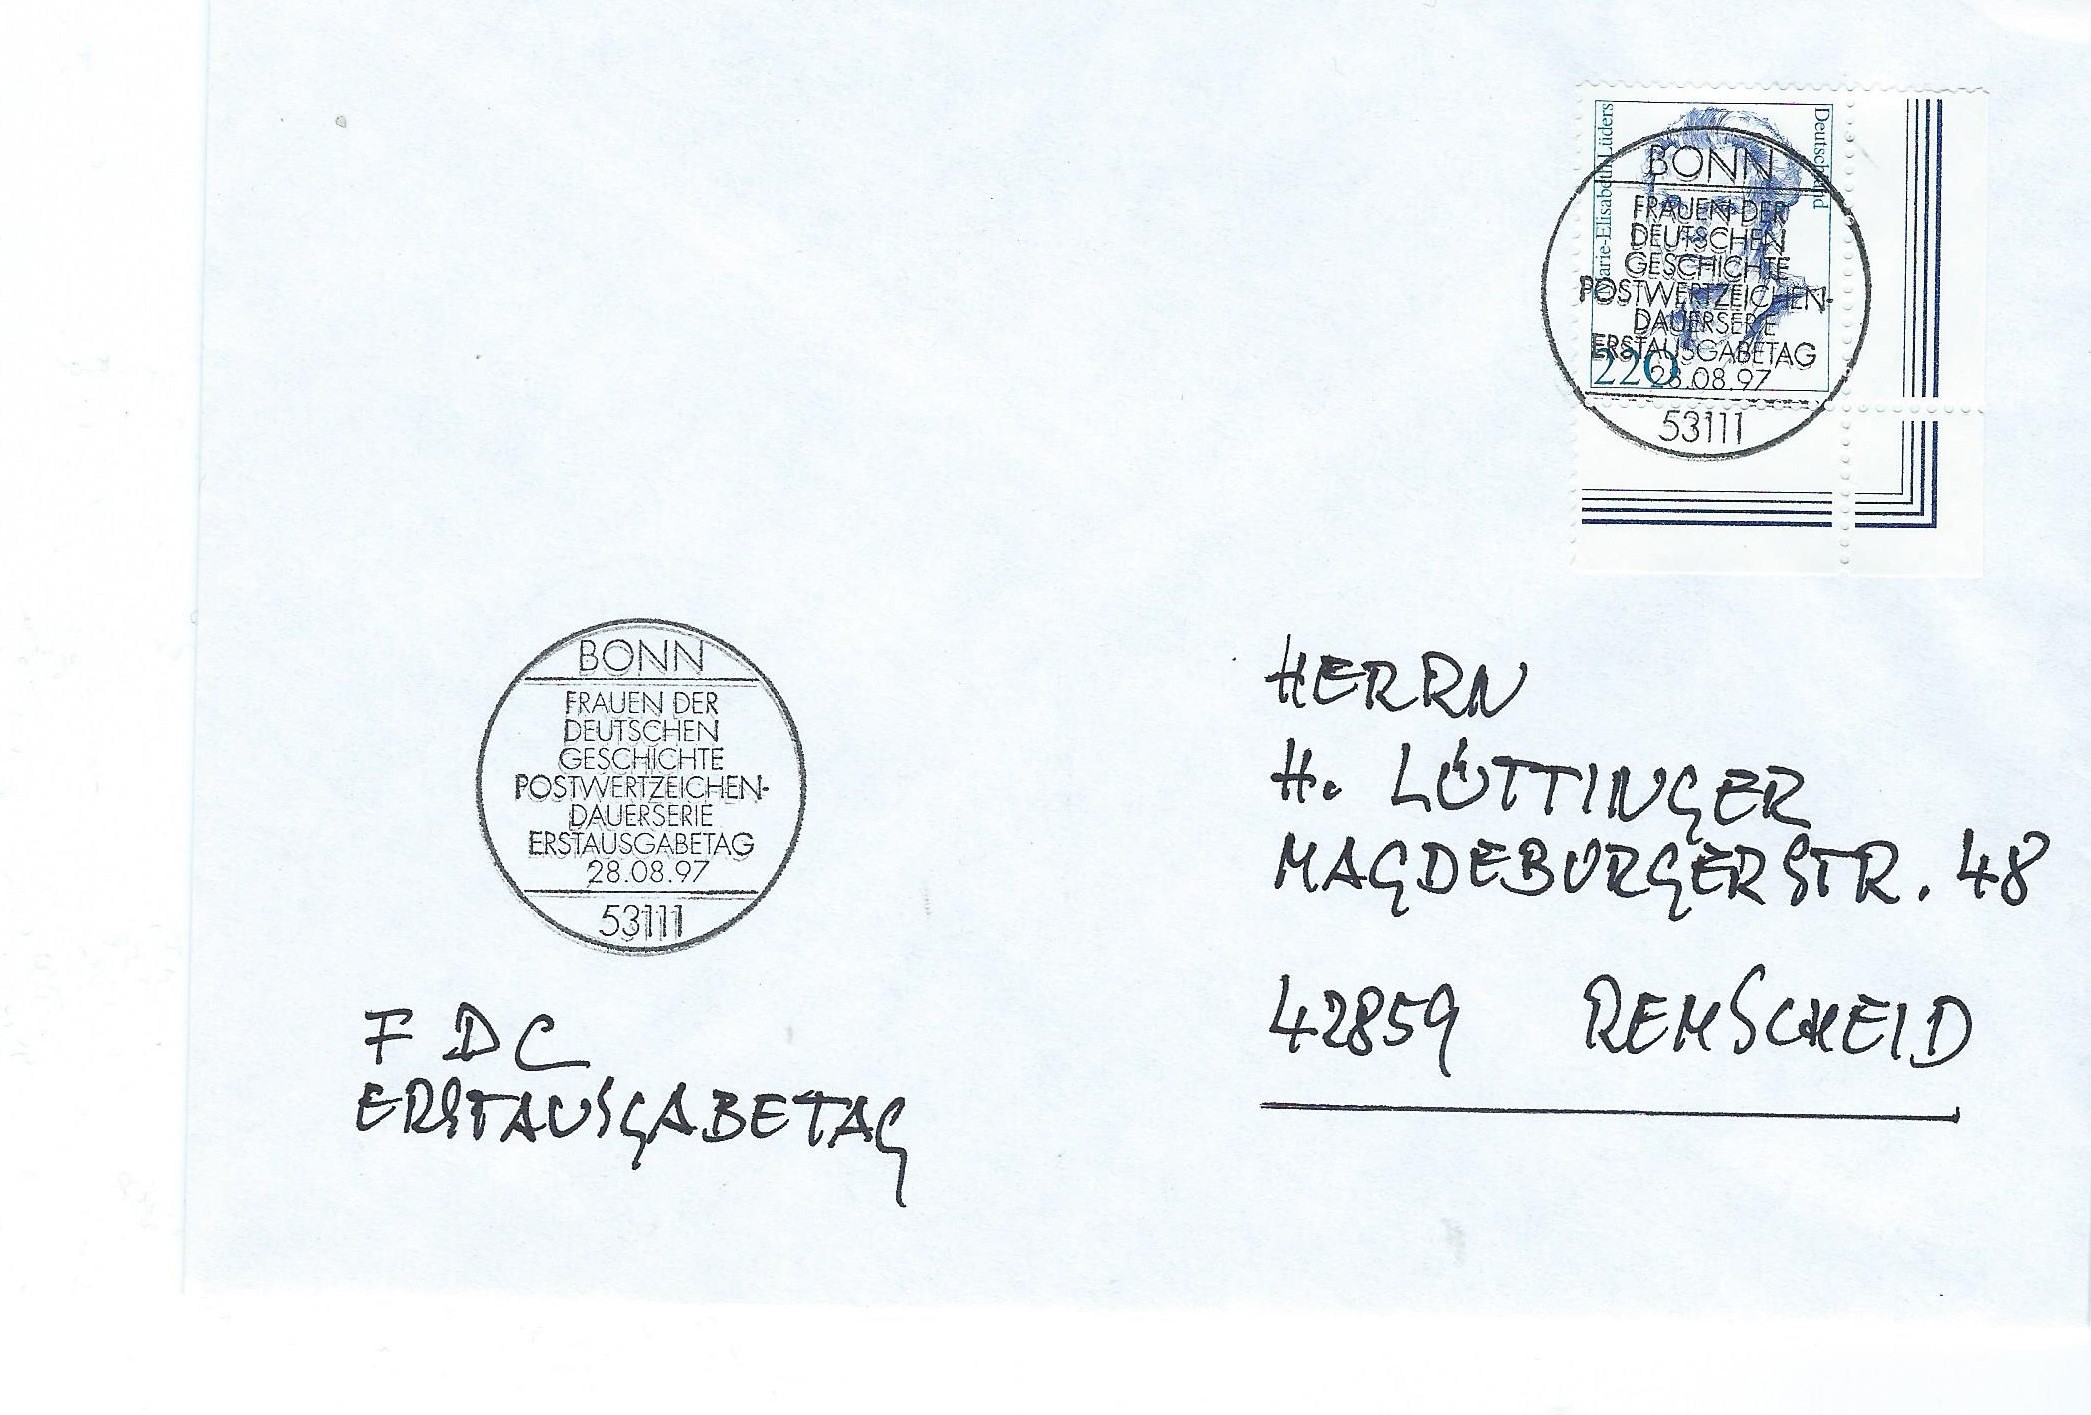 Marie-Elisabeth Lüders
Deutschland
220
BONN
FRAUEN DER
DEUTSCHEN
GESCHICHTE
POSTWERTZEICHEN-
DAUERSERIE
ERSTAUSGABETAG
28.08.97
53111
BONN
FRAUEN DER
DEUTSCHEN
GESCHICHTE
POSTWERTZEICHEN-
DAUERSERIE
ERSTAUSGABETAG
28.08.97
53111
HERRN
H. LÜTTINGER
MAGDEBURGERSTR. 48
42859 REMSCHEID
F D C
ERSTAUSGABETAG